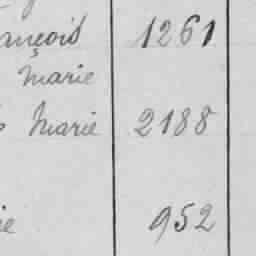 ançois 1261
Marie
Marie 2188
ie 952